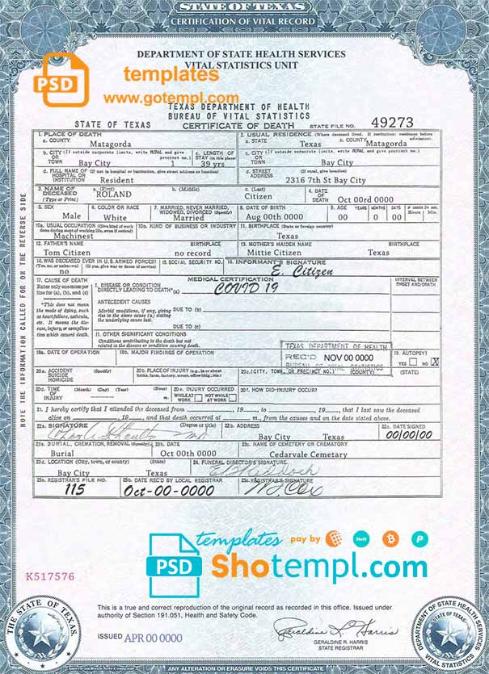 STATE OF TEXAS
CERTIFICATION OF VITAL RECORD
DEPARTMENT OF STATE HEALTH SERVICES
VITAL STATISTICS UNIT
PSD
templates
www.gotempl.com
TEXAS DEPARTMENT OF HEALTH
BUREAU OF VITAL STATISTICS
STATE OF TEXAS CERTIFICATE OF DEATH STATE FILE NO. 49273
1. PLACE OF DEATH 2. USUAL RESIDENCE (Where deceased lived. If institution: residence before admission)
a. COUNTY Matagorda a. STATE Texas b. COUNTY Matagorda
b. CITY OR TOWN Bay City 1 c. LENGTH OF STAY 39 yrs c. CITY OR TOWN Bay City
d. FULL NAME OF HOSPITAL OR INSTITUTION Resident d. STREET ADDRESS 2316 7th St Bay City
3. NAME OF DECEASED (Type or Print) a. (First) ROLAND b. (Middle) c. (Last) Citizen 4. DATE OF DEATH Oct 00rd 0000
5. SEX Male 6. COLOR OR RACE White 7. MARRIED, NEVER MARRIED, WIDOWED, DIVORCED (Specify) Married 8. DATE OF BIRTH Aug 00th 0000 9. AGE YEARS 00 MONTHS 00 DAYS 00
10a. USUAL OCCUPATION Machinest 10b. KIND OF BUSINESS OR INDUSTRY 11. BIRTHPLACE (State or foreign country) Texas
12. FATHER'S NAME Tom Citizen BIRTHPLACE no record 13. MOTHER'S MAIDEN NAME Mittie Citizen BIRTHPLACE Texas
14. WAS DECEASED EVER IN U.S. ARMED FORCES? no 15. SOCIAL SECURITY NO. 16. INFORMANT'S SIGNATURE E. Citizen
17. CAUSE OF DEATH MEDICAL CERTIFICATION INTERVAL BETWEEN ONSET AND DEATH
I. DISEASE OR CONDITION DIRECTLY LEADING TO DEATH* (a) COVID 19
ANTECEDENT CAUSES
DUE TO (b)
DUE TO (c)
II. OTHER SIGNIFICANT CONDITIONS
TEXAS DEPARTMENT OF HEALTH
REC'D NOV 00 0000
BUREAU OF VITAL STATISTICS
18a. DATE OF OPERATION 18b. MAJOR FINDINGS OF OPERATION 19. AUTOPSY? YES NO X
20a. ACCIDENT SUICIDE HOMICIDE 20b. PLACE OF INJURY 20c. (CITY, TOWN, OR PRECINCT NO.) (COUNTY) (STATE)
20d. TIME OF INJURY 20e. INJURY OCCURRED WHILE AT WORK NOT WHILE AT WORK 20f. HOW DID INJURY OCCUR?
21. I hereby certify that I attended the deceased from 19 to 19 , that I last saw the deceased
alive on 19 , and that death occurred at m., from the causes and on the date stated above.
22a. SIGNATURE (Degree or title) 22b. ADDRESS Bay City Texas 22c. DATE SIGNED 00/00/00
23a. BURIAL, CREMATION, REMOVAL Burial 23b. DATE Oct 00th 0000 23c. NAME OF CEMETERY OR CREMATORY Cedarvale Cemetary
23d. LOCATION (City, town, or county) Bay City (State) Texas 24. FUNERAL DIRECTOR'S SIGNATURE
25a. REGISTRAR'S FILE NO. 115 25b. DATE REC'D BY LOCAL REGISTRAR Oct-00-0000 25c. REGISTRAR'S SIGNATURE
NOTE THE INFORMATION CALLED FOR ON THE REVERSE SIDE
templates pay by
PSD Shotempl.com
K517576
This is a true and correct reproduction of the original record as recorded in this office. Issued under
authority of Section 191.051, Health and Safety Code.
ISSUED APR 00 0000
Geraldine R. Harris
GERALDINE R. HARRIS
STATE REGISTRAR
THE STATE OF TEXAS
DEPARTMENT OF STATE HEALTH SERVICES
VITAL STATISTICS
ANY ALTERATION OR ERASURE VOIDS THIS CERTIFICATE